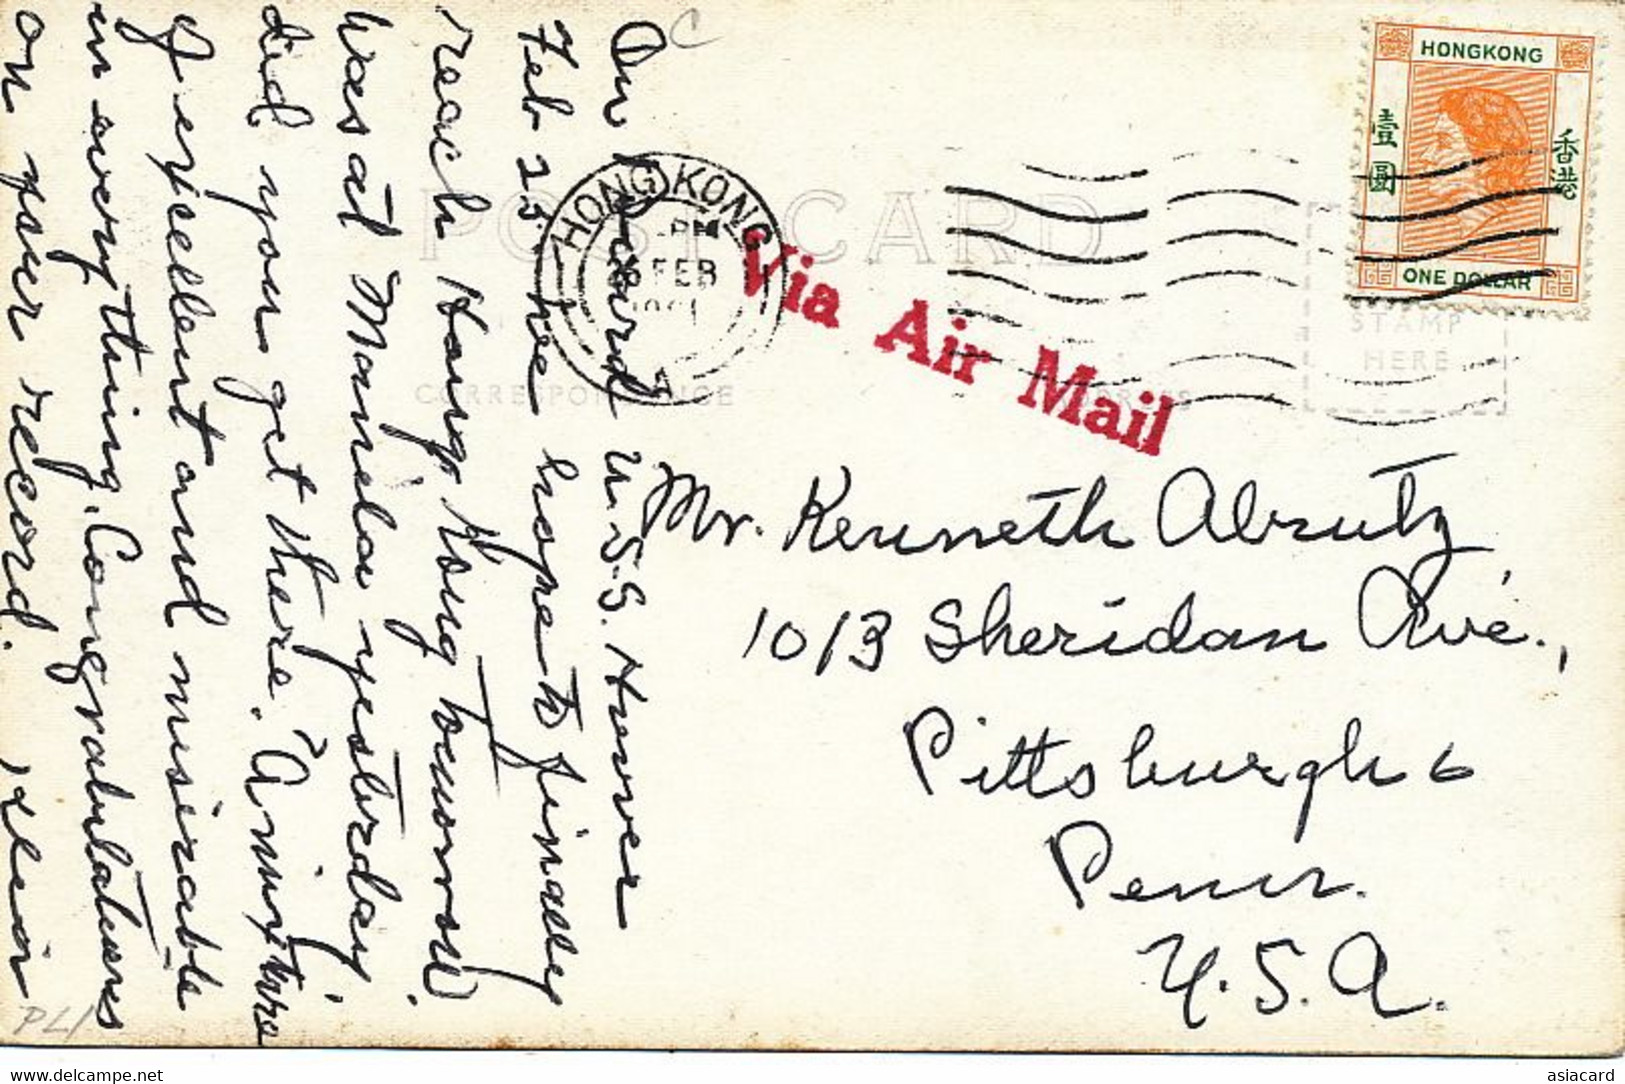 On Board U.S.S. Hoover
Feb 25. We hope to finally
reach Hong Kong tomorrow.
Was at Manila yesterday
did you get there. A mixture
of excellent and miserable
in everything. Congratulations
on your record.
POST CARD
CORRESPONDENCE
ADDRESS
STAMP
HERE
HONG KONG
PM
FEB
Via Air Mail
HONGKONG
壹圓
香港
ONE DOLLAR
Mr. Kenneth Abrutz
1013 Sheridan Ave.,
Pittsburgh 6
Penn.
U.S.A.
C
PL1
www.delcampe.net
asiacard